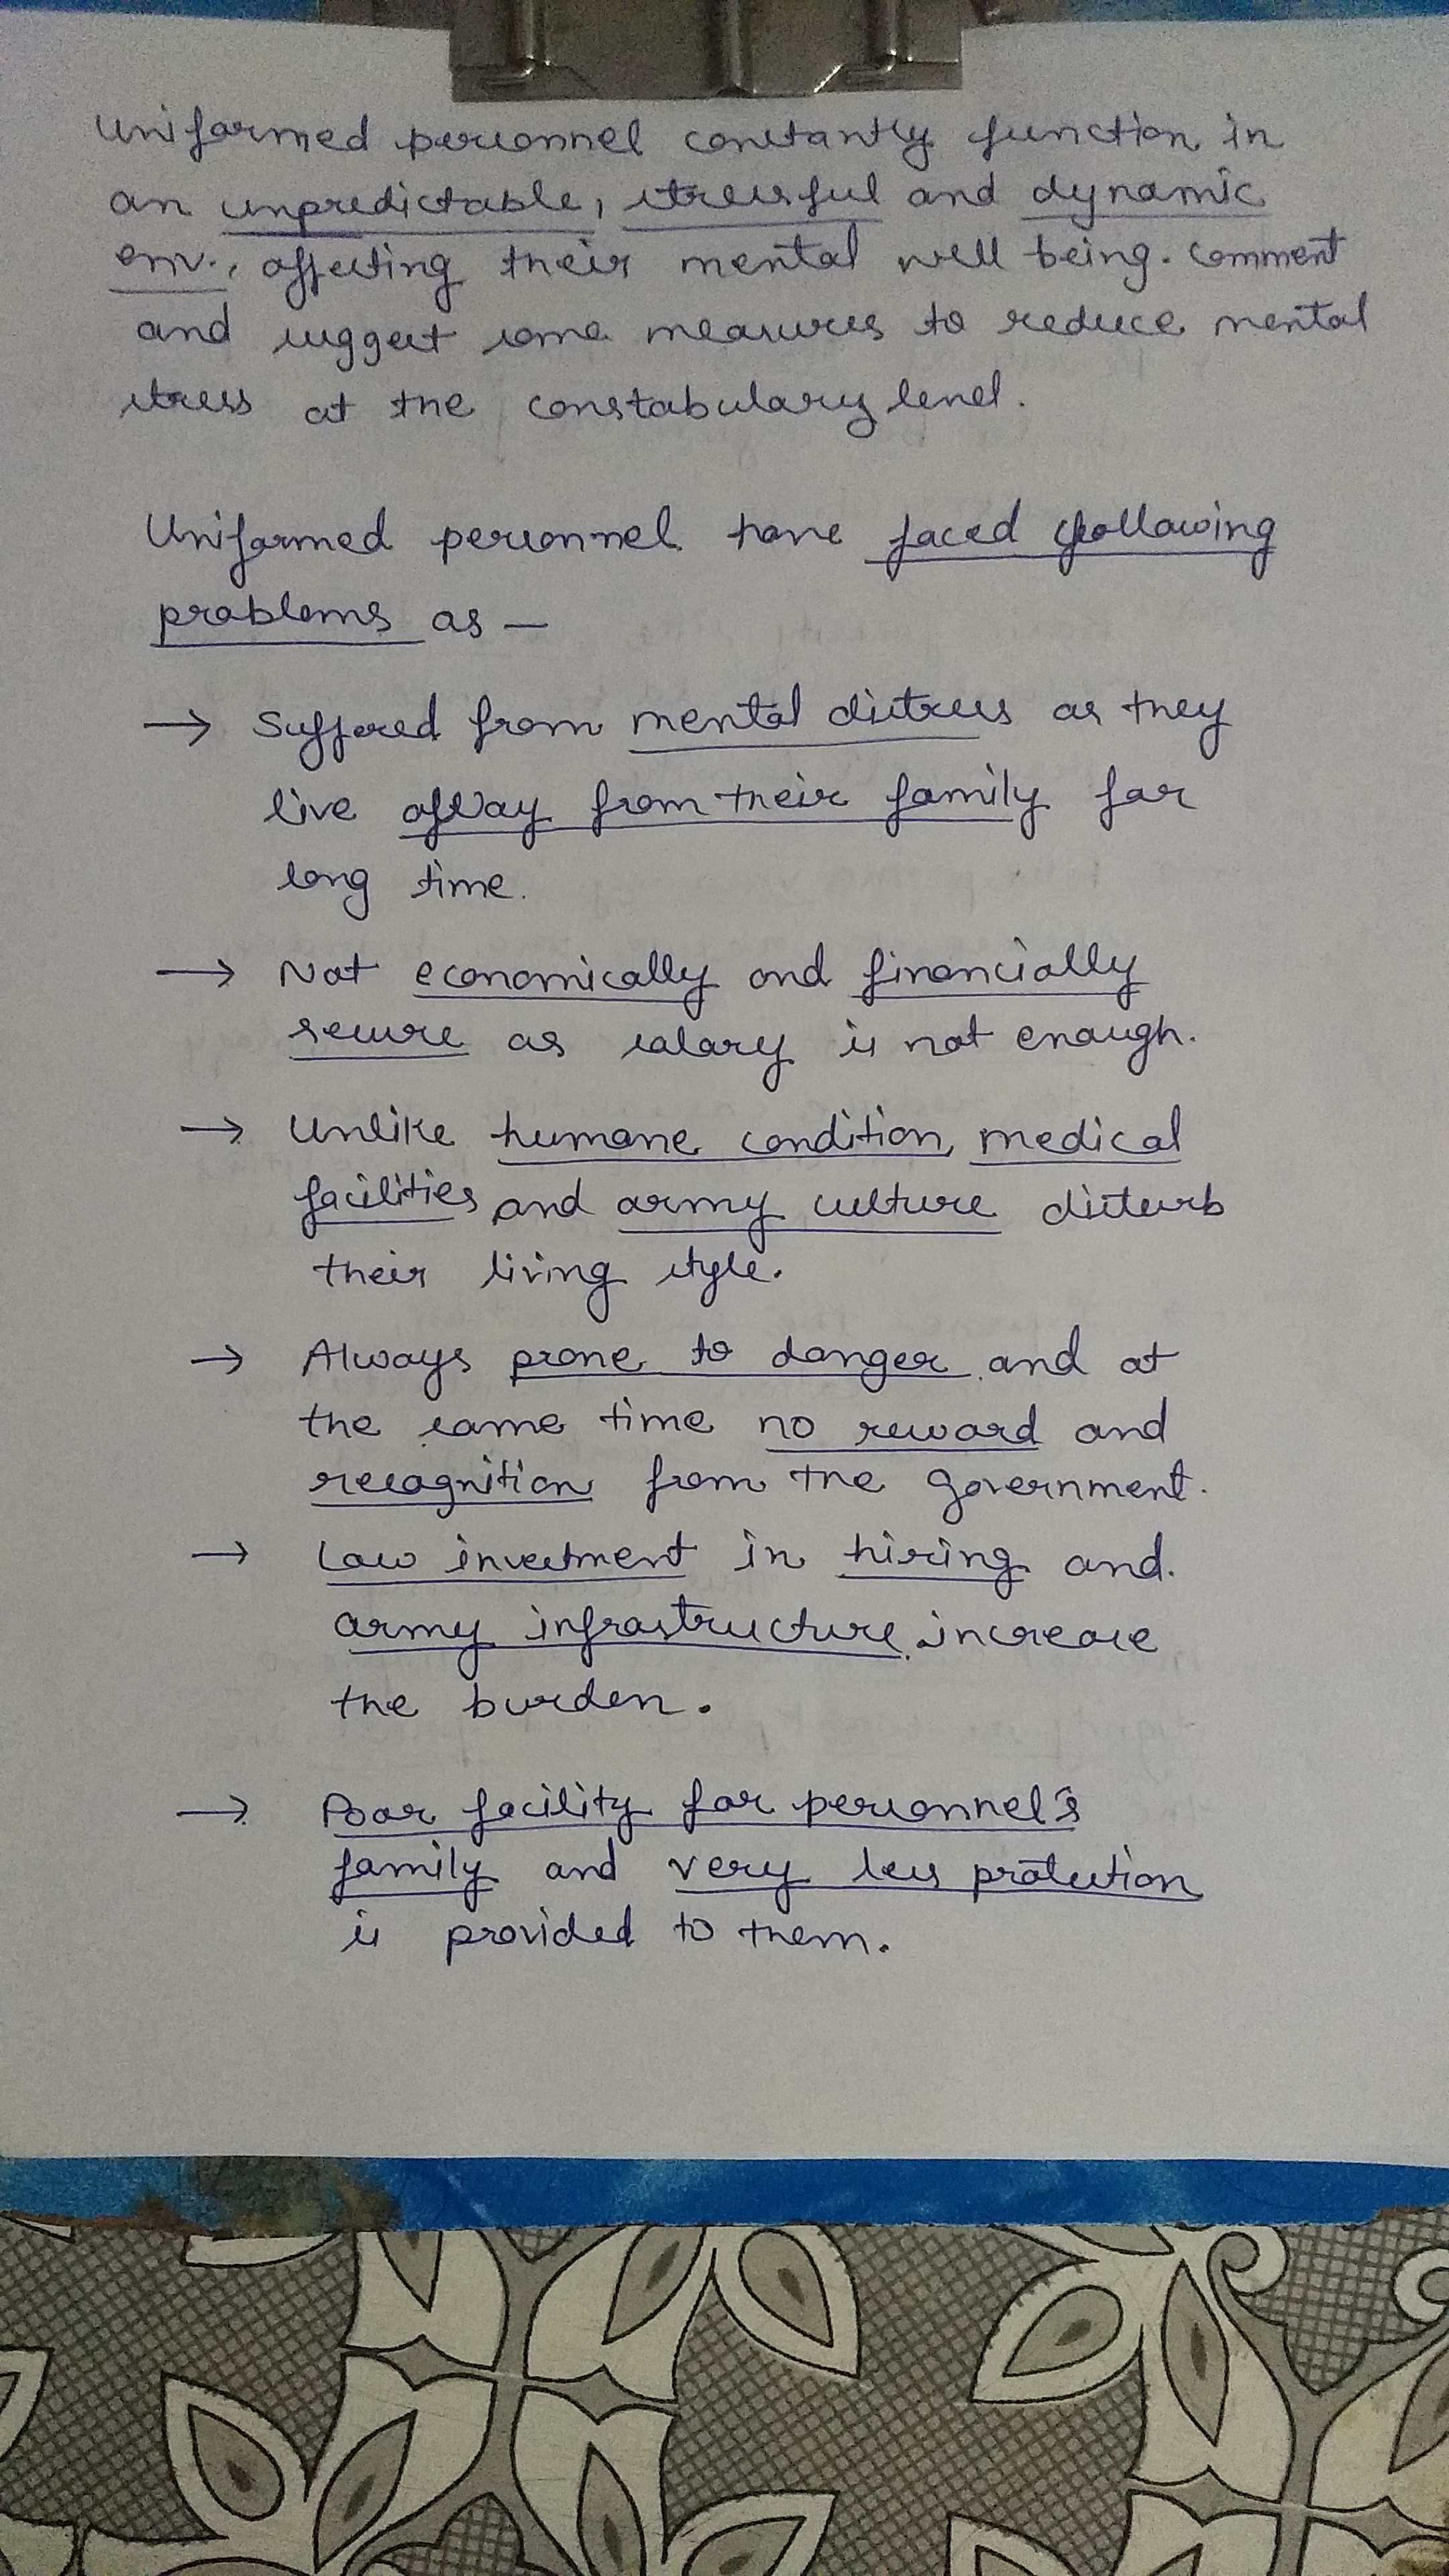 Uniformed personnel constantly function in
an unpredictable, stressful and dynamic
env., affecting their mental well being. Comment
and suggest some measures to reduce mental
stress at the constabulary level.
Uniformed personnel have faced following
problems as —
→ Suffered from mental distress as they
live away from their family for
long time.
→ Not economically and financially
secure as salary is not enough.
→ Unlike humane condition, medical
facilities and army culture disturb
their living style.
→ Always prone to danger and at
the same time no reward and
recognition from the Government.
→ Low investment in hiring and
army infrastructure increase
the burden.
→ Poor facility for personnel's
family and very less protection
is provided to them.